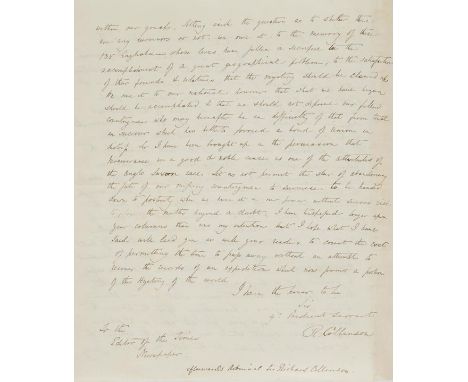 within our grasp. Setting aside the question as to whether there
are any survivors or not, we owe it, to the memory of these
135 Englishmen whose lives have fallen a sacrifice to the
accomplishment of a great geographical problem; to the satisfaction
of their friends & relatives that the mystery should be cleared up
We owe it to our national honour that what we have begun
should be accomplished & that we should not
countrymen who may hereafter be in difficulty of that firm trust
in succour which has hitherto formed a bond of union in
I have been brought up in the persuasion that
perseverance in a good & noble cause is one of the attributes of
the Anglo Saxon race. Let us not permit the of abandoning
the fate of our missing countrymen to be handed
down to posterity when we have it in our power
the matter beyond a doubt. I have trespassed longer upon
your columns than was my intention but I hope what I have
said will lead you as well your readers to count the cost
of permitting the time to pass away without an attempt to
recover the records of an expedition which now forms a portion
of the History of the world
I have the honor to be
Sir
Yr Obedient Servant
R. Collinson
To the
Editor of the Times
Newspaper
afterwards Admiral Sir Richard Collinson